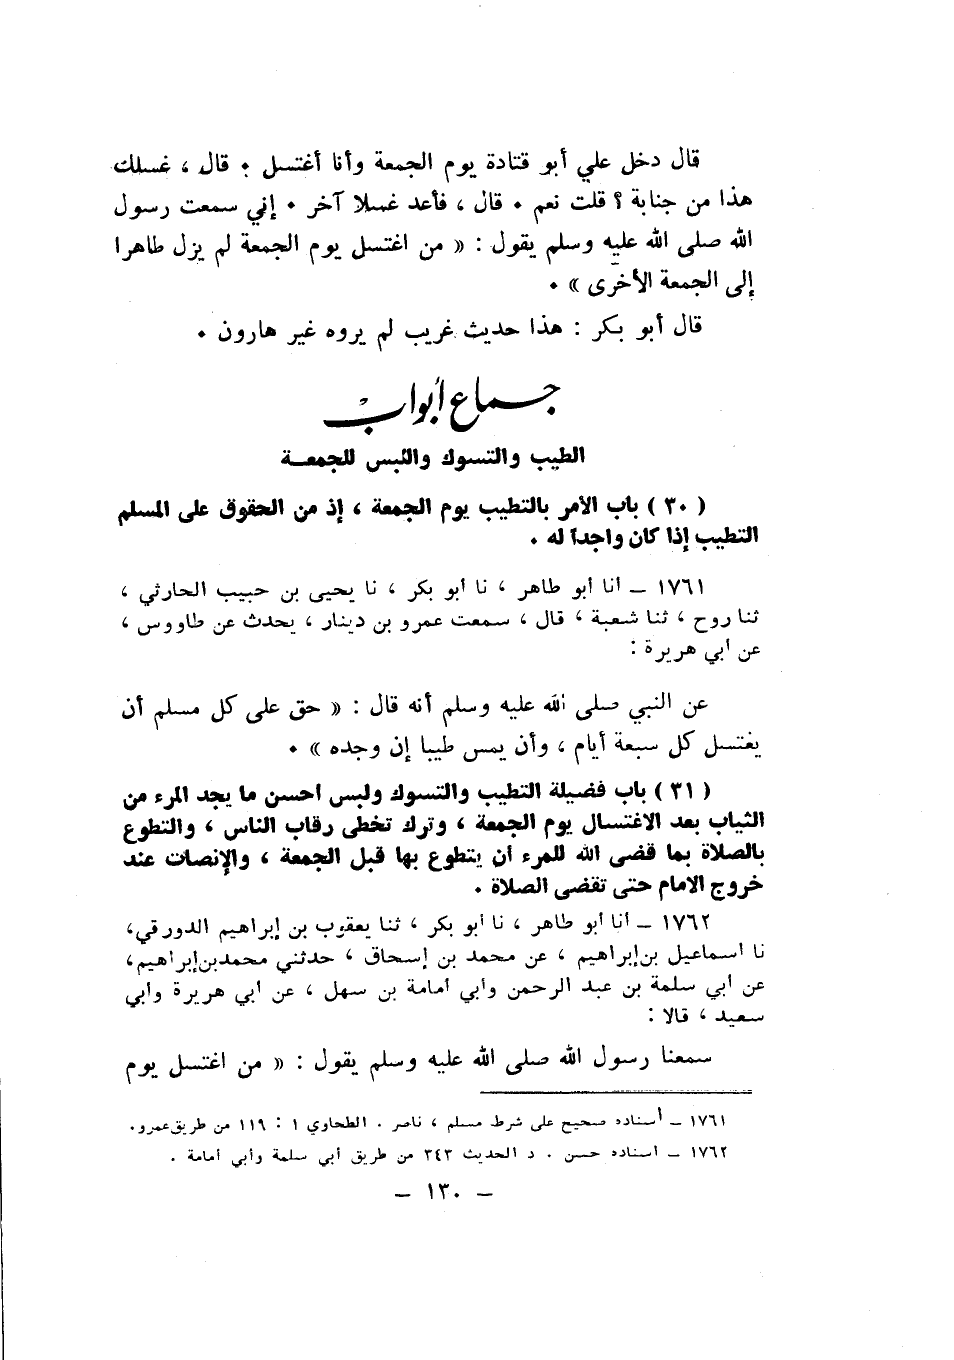 قال دخل علي أبو قتادة يوم الجمعة وأنا أغتسل . قال ، غسلك
هذا من جنابة ؟ قلت نعم . قال ، فأعد غسلا آخر . إني سمعت رسول
الله صلى الله عليه وسلم يقول : « من اغتسل يوم الجمعة لم يزل طاهرا
إلى الجمعة الأخرى » .
قال أبو بكر : هذا حديث غريب لم يروه غير هارون .
جماع أبواب
الطيب والتسوك واللبس للجمعــة
( ٣٠ ) باب الأمر بالتطيب يوم الجمعة ، إذ من الحقوق على المسلم
التطيب إذا كان واجداً له .
١٧٦١ ــ أنا أبو طاهر ، نا أبو بكر ، نا يحيى بن حبيب الحارثي ،
ثنا روح ، ثنا شعبة ، قال ، سمعت عمرو بن دينار ، يحدث عن طاووس ،
عن أبي هريرة :
عن النبي صلى الله عليه وسلم أنه قال : « حق على كل مسلم أن
يغتسل كل سبعة أيام ، وأن يمس طيبا إن وجده » .
( ٣١ ) باب فضيلة التطيب والتسوك ولبس احسن ما يجد المرء من
الثياب بعد الاغتسال يوم الجمعة ، وترك تخطى رقاب الناس ، والتطوع
بالصلاة بما قضى الله للمرء أن يتطوع بها قبل الجمعة ، والإنصات عند
خروج الامام حتى تقضى الصلاة .
١٧٦٢ ــ أنا أبو طاهر ، نا أبو بكر ، ثنا يعقوب بن إبراهيم الدورقي،
نا اسماعيل بن إبراهيم ، عن محمد بن إسحاق ، حدثني محمد بن إبراهيم،
عن أبي سلمة بن عبد الرحمن وأبي أمامة بن سهل ، عن أبي هريرة وأبي
سعيد ، قالا :
سمعنا رسول الله صلى الله عليه وسلم يقول : « من اغتسل يوم
١٧٦١ ــ أسناده صحيح على شرط مسلم ، ناصر . الطحاوي ١ : ١١٩ من طريق عمرو.
١٧٦٢ ــ اسناده حسن . د الحديث ٣٤٣ من طريق أبي سلمة وأبي أمامة .
ــ ١٣٠ ــ